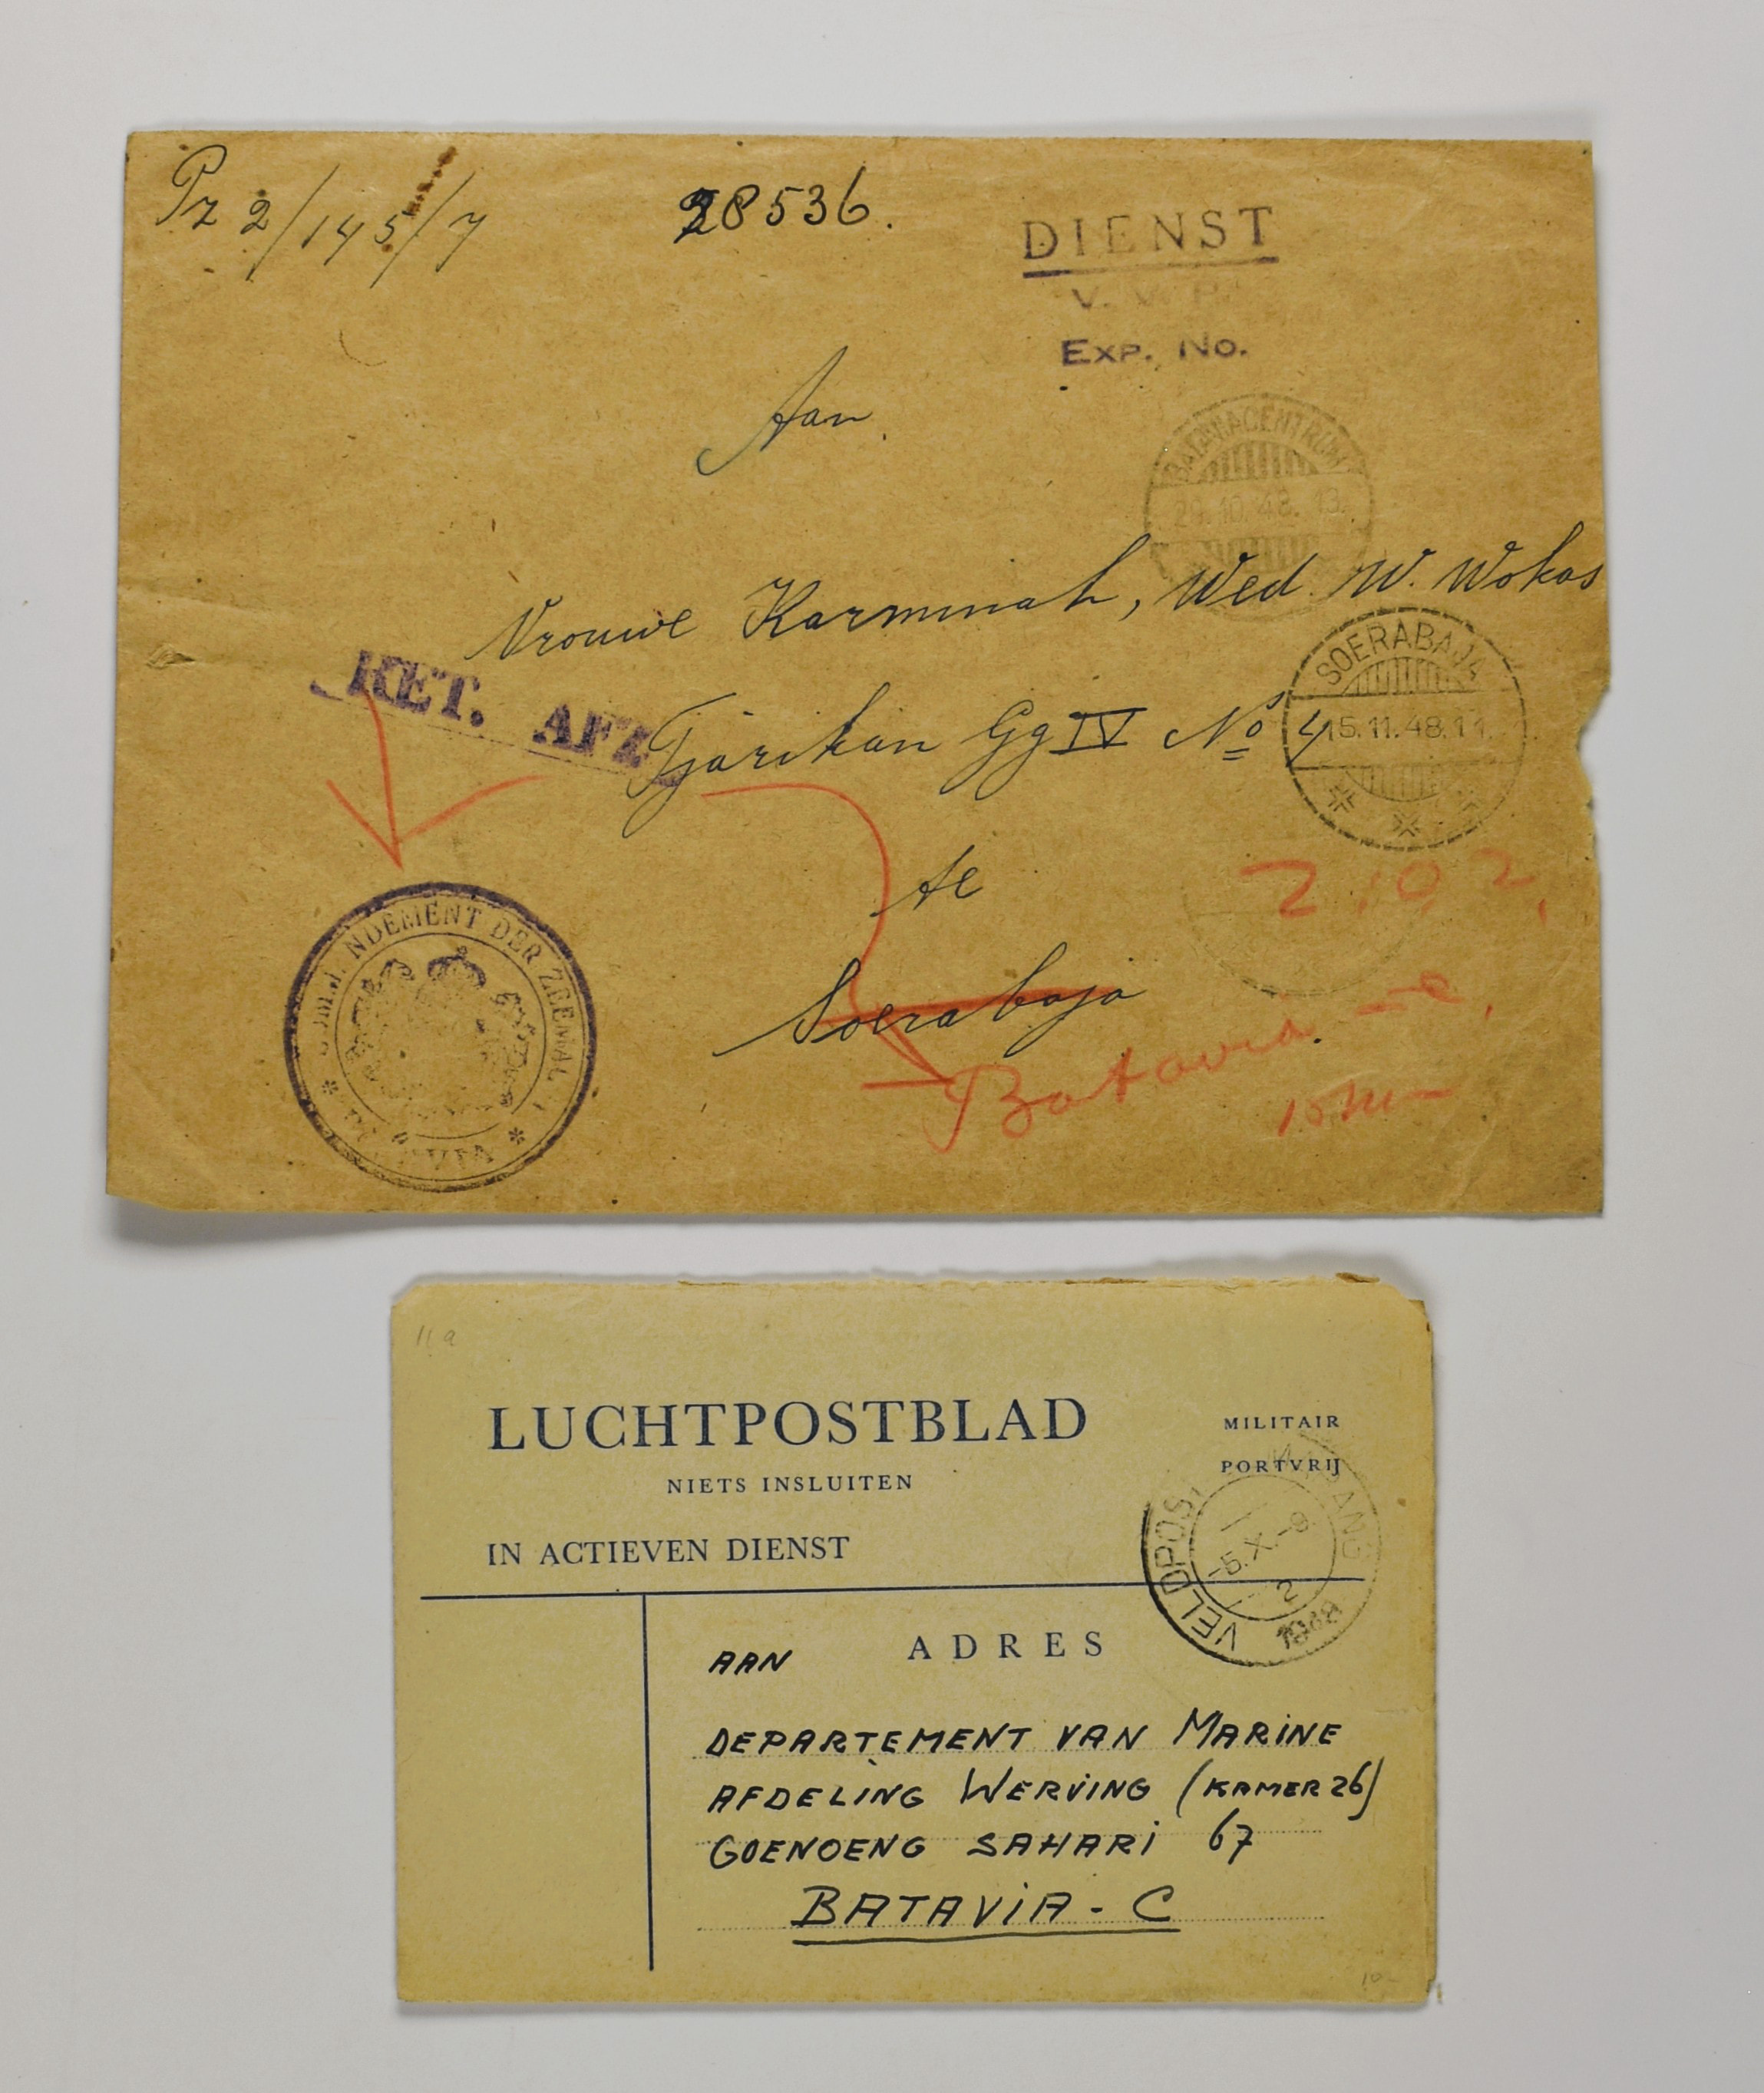 Pz 2/145/7
28536.
DIENST
Exp. No.
Aan
BATAVIACENTRUM
29.10.48.13.
Vrouwe Karminah, Wed. W. Wokas
RET. AFZ.
Tjarikan Gg IV No 4
SOERABAJA
15.11.48.11.
te
Soerabaja
2.10.2.
Batavia-c.
NDEMENT DER ZEEMA
11a
LUCHTPOSTBLAD
NIETS INSLUITEN
IN ACTIEVEN DIENST
MILITAIR
PORTVRIJ
VELDPOST
-5.X.-9.
2
1948
ADRES
AAN
DEPARTEMENT VAN MARINE
AFDELING WERVING (KAMER 26)
GOENOENG SAHARI 67
BATAVIA-C
10-